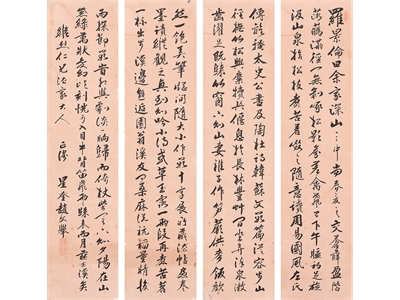 羅景倫曰余家深山之中每春夏之交蒼蘚盈階
落花滿徑門無剝啄松影參差禽聲上下午睡初足旋
汲山泉拾松枝煮苦茗啜之隨意讀周易國風左氏
傳離騷太史公書及陶杜詩韓蘇文數篇從容步山
徑撫松竹與麋犢共偃息於長林豐草間坐弄流泉漱
齒濯足既歸竹窗下則山妻稚子作筍蕨供麥飯欣
然一飽弄筆窗間隨大小作數十字展所藏法帖畫卷
墨蹟縱觀之興到則吟小詩或草玉露一兩段再烹苦茗
一杯出步溪邊邂逅園翁溪友問桑麻說秔稻量晴校
雨探節數時相與劇談一晌歸而倚杖柴門之下則夕陽在山
紫綠萬狀變幻頃刻恍可入目牛背笛聲兩兩歸來而月印前溪矣
仁兄法家大人 正
星奎趙文